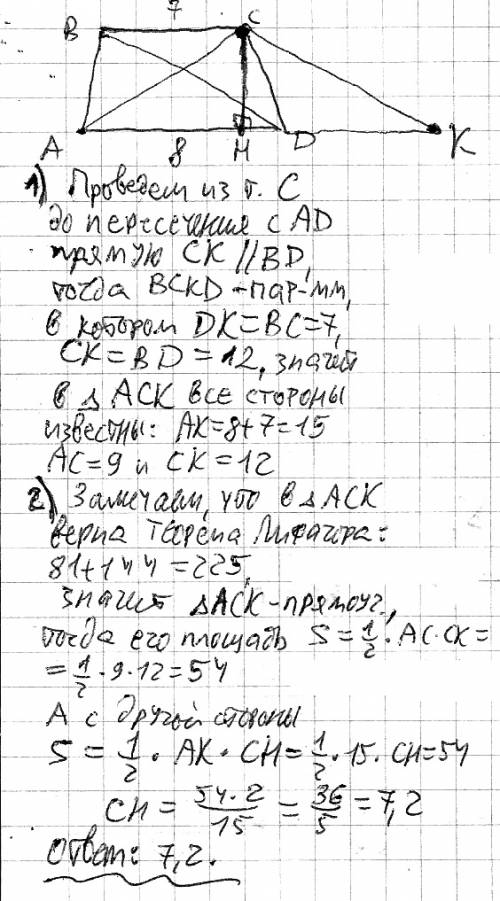 7
B C
A 8 H D K
1) Проведем из т. С
до пересечения с AD
прямую CK // BD,
тогда BCKD - пар-мм,
в котором DK = BC = 7,
CK = BD = 12, значит
в Δ ACK все стороны
известны: AK = 8+7 = 15
AC = 9 и CK = 12
2) Замечаем, что в Δ ACK
верна Теорема Пифагора:
81 + 144 = 225,
значит ΔACK - прямоуг.,
тогда его площадь S = 1/2 · AC · CK =
= 1/2 · 9 · 12 = 54
А с другой стороны
S = 1/2 · AK · CH = 1/2 · 15 · CH = 54
CH = 54·2/15 = 36/5 = 7,2
Ответ: 7,2.